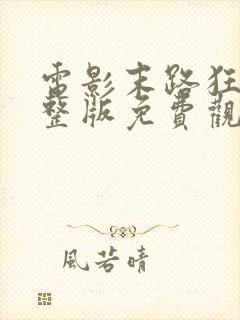 電影末路狂
整版免費觀
風若晴